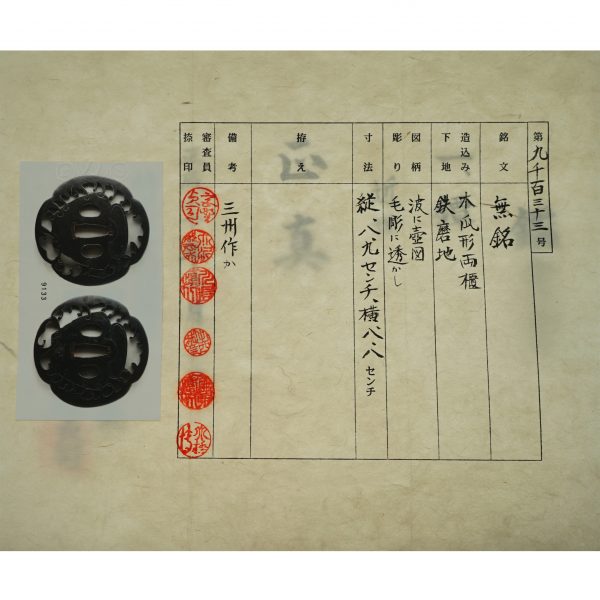 第九千百三十三号
銘文 無銘
造込み 木瓜形両櫃
下地 鉄磨地
図柄 波に壺図
彫り 毛彫に透かし
寸法 縦、八.九センチ、横、八.八センチ
拵え
備考 三州作か
審査員
捺印
9133